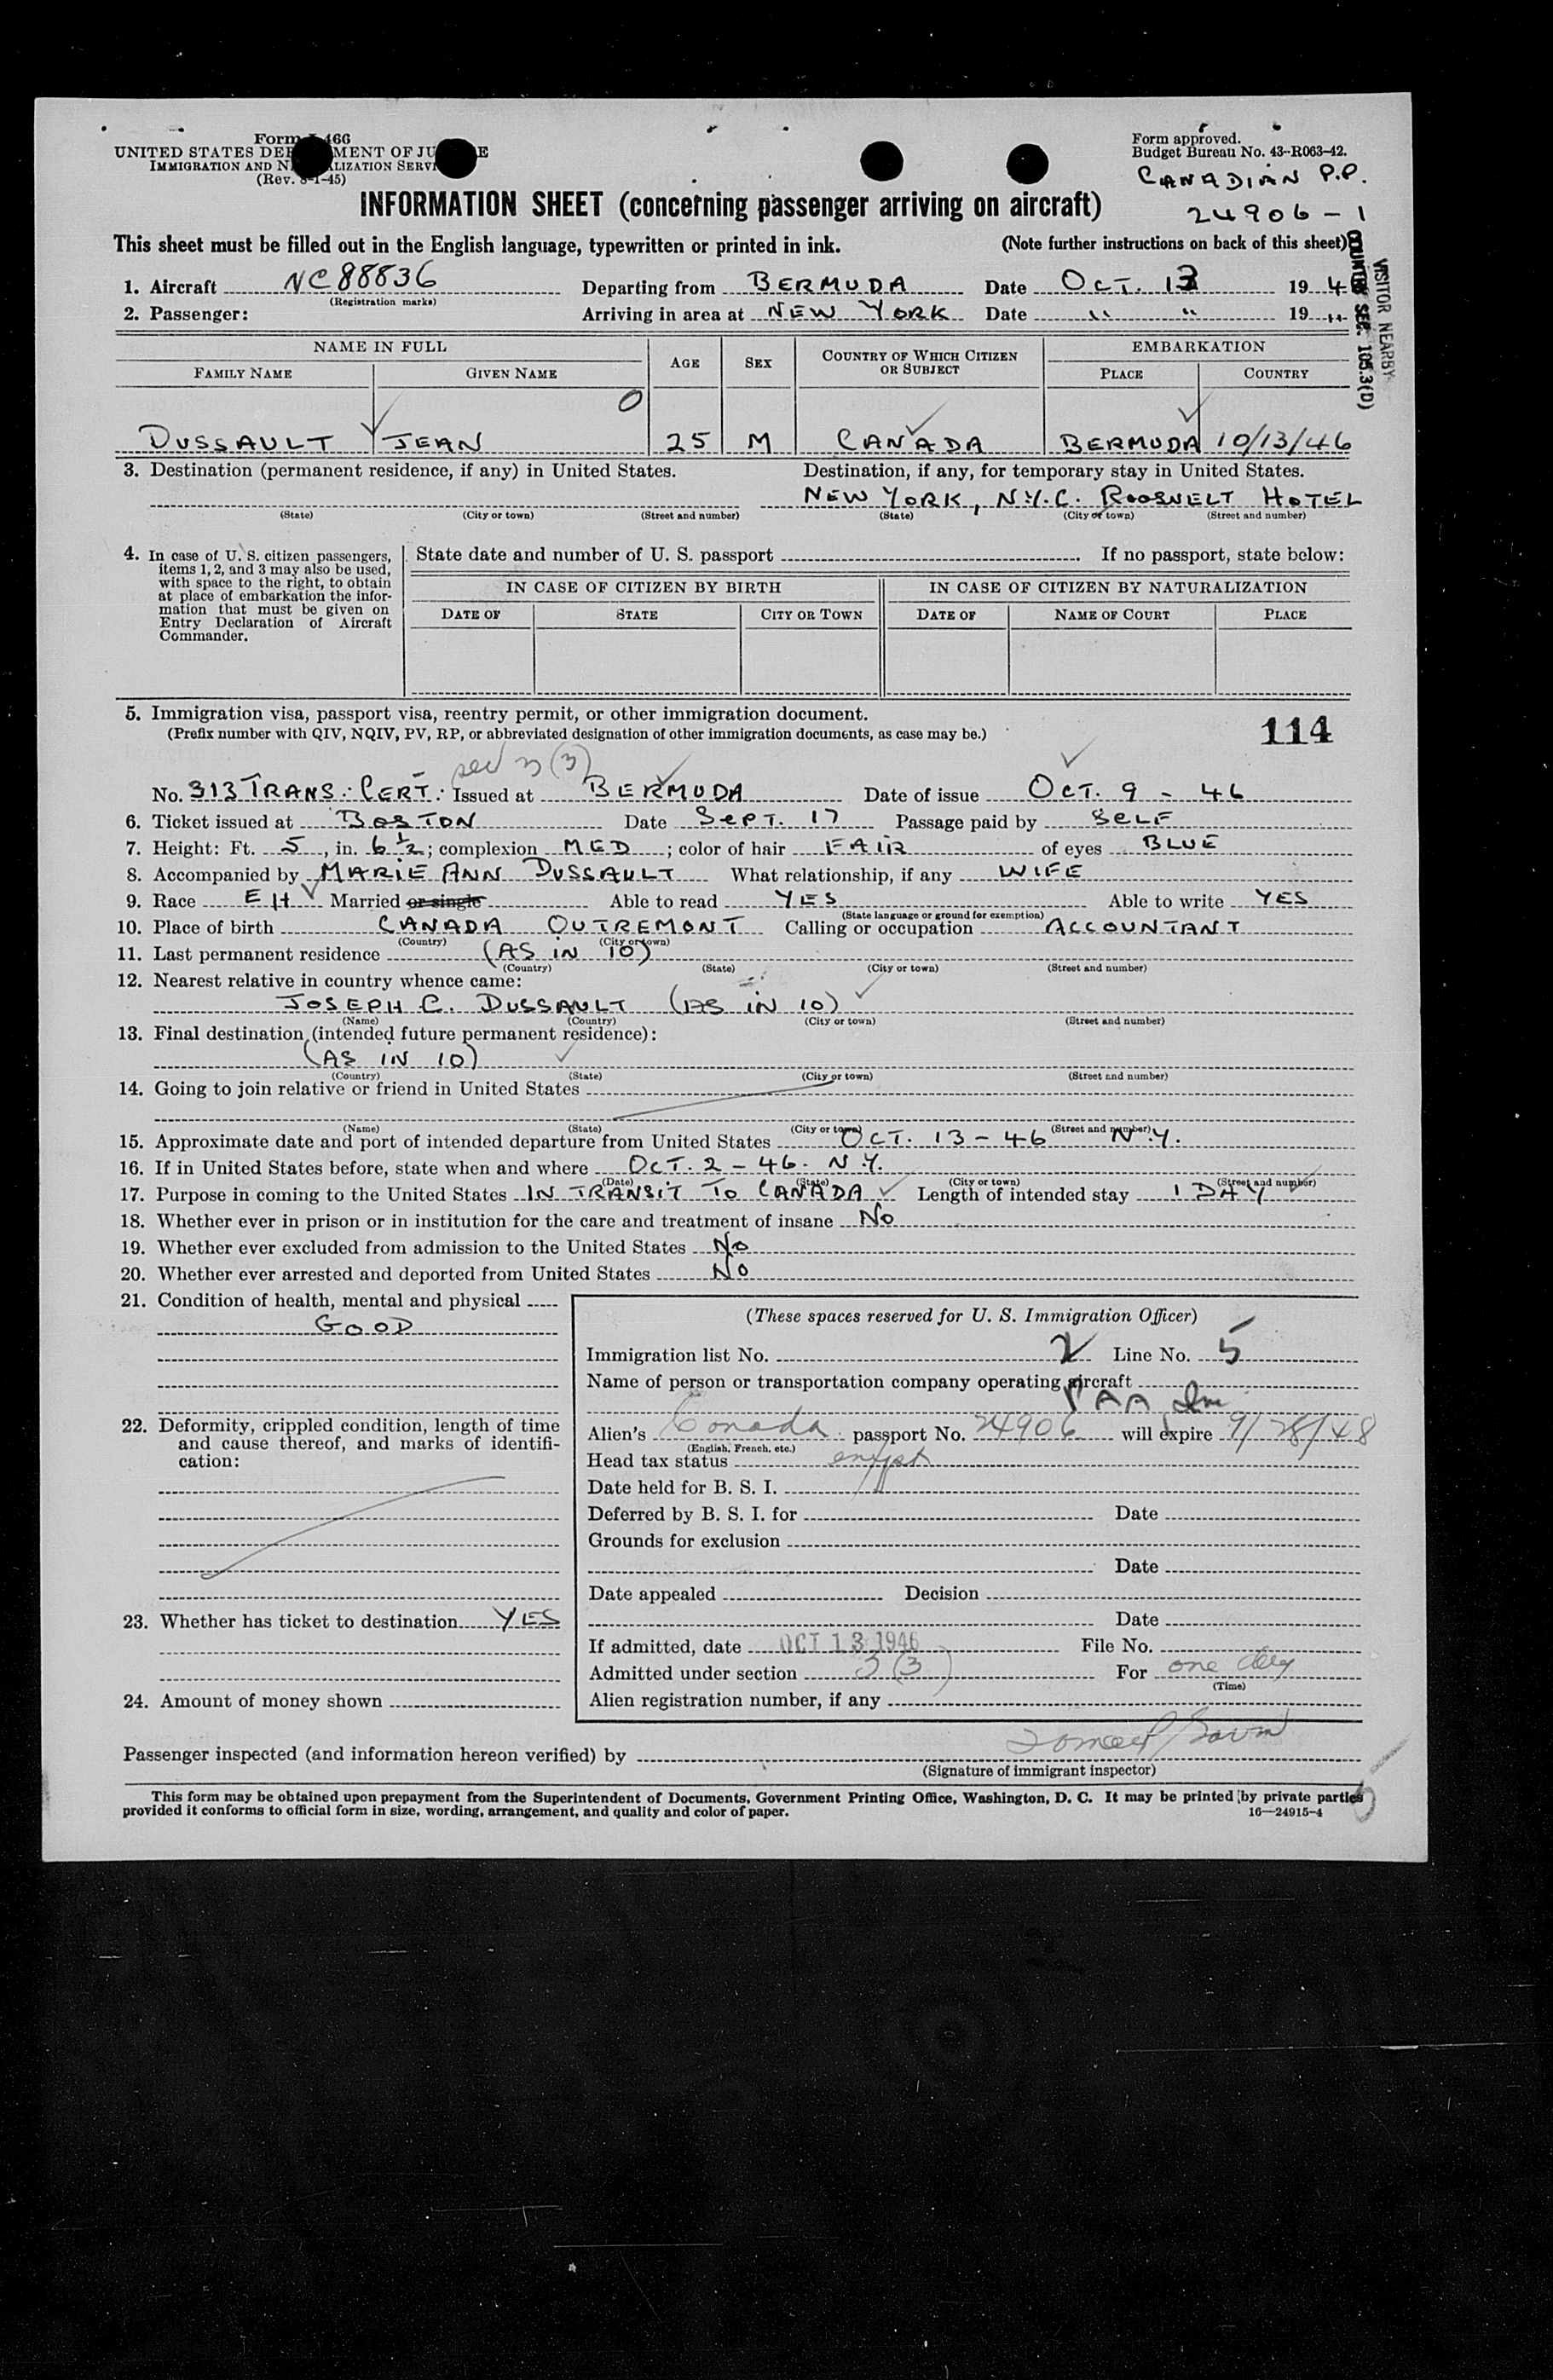 Form I-466
UNITED STATES DEPARTMENT OF JUSTICE
IMMIGRATION AND NATURALIZATION SERVICE
(Rev. 8-1-45)
Form approved.
Budget Bureau No. 43-R063-42.
CANADIAN P.P.
24906-1
INFORMATION SHEET (concerning passenger arriving on aircraft)
This sheet must be filled out in the English language, typewritten or printed in ink. (Note further instructions on back of this sheet)
VISITOR NEARBY
COUNTRY SEC. 105.3(D)
1. Aircraft NC88836 Departing from BERMUDA Date OCT. 13 194
(Registration marks)
2. Passenger: Arriving in area at NEW YORK Date " " 19 "
NAME IN FULL AGE SEX COUNTRY OF WHICH CITIZEN OR SUBJECT EMBARKATION
FAMILY NAME GIVEN NAME PLACE COUNTRY
0
DUSSAULT JEAN 25 M CANADA BERMUDA 10/13/46
3. Destination (permanent residence, if any) in United States. Destination, if any, for temporary stay in United States.
NEW YORK, N.Y.C. ROOSVELT HOTEL
(State) (City or town) (Street and number) (State) (City or town) (Street and number)
4. In case of U. S. citizen passengers, items 1, 2, and 3 may also be used, with space to the right, to obtain at place of embarkation the information that must be given on Entry Declaration of Aircraft Commander.
State date and number of U. S. passport If no passport, state below:
IN CASE OF CITIZEN BY BIRTH IN CASE OF CITIZEN BY NATURALIZATION
DATE OF STATE CITY OR TOWN DATE OF NAME OF COURT PLACE
5. Immigration visa, passport visa, reentry permit, or other immigration document.
(Prefix number with QIV, NQIV, PV, RP, or abbreviated designation of other immigration documents, as case may be.)
114
sec 3 (3)
No. 313 TRANS. CERT. Issued at BERMUDA Date of issue OCT. 9 - 46
6. Ticket issued at BOSTON Date SEPT. 17 Passage paid by SELF
7. Height: Ft. 5, in. 6 1/2; complexion MED; color of hair FAIR of eyes BLUE
8. Accompanied by MARIE ANN DUSSAULT What relationship, if any WIFE
9. Race EH Married or single Able to read YES Able to write YES
(State language or ground for exemption)
10. Place of birth CANADA OUTREMONT Calling or occupation ACCOUNTANT
(Country) (City or town)
11. Last permanent residence (AS IN 10)
(Country) (State) (City or town) (Street and number)
12. Nearest relative in country whence came:
JOSEPH C. DUSSAULT (AS IN 10)
(Name) (Country) (City or town) (Street and number)
13. Final destination (intended future permanent residence):
(AS IN 10)
(Country) (State) (City or town) (Street and number)
14. Going to join relative or friend in United States
(Name) (State) (City or town) (Street and number)
15. Approximate date and port of intended departure from United States OCT. 13 - 46 N.Y.
16. If in United States before, state when and where OCT. 2 - 46. N.Y.
(Date) (State) (City or town) (Street and number)
17. Purpose in coming to the United States IN TRANSIT TO CANADA Length of intended stay 1 DAY
18. Whether ever in prison or in institution for the care and treatment of insane NO
19. Whether ever excluded from admission to the United States NO
20. Whether ever arrested and deported from United States NO
21. Condition of health, mental and physical
GOOD
22. Deformity, crippled condition, length of time and cause thereof, and marks of identification:
23. Whether has ticket to destination YES
24. Amount of money shown
(These spaces reserved for U. S. Immigration Officer)
Immigration list No. 2 Line No. 5
Name of person or transportation company operating aircraft
PAA Inc
Alien's Canada passport No. 24906 will expire 9/28/48
(English, French, etc.)
Head tax status
Date held for B. S. I.
Deferred by B. S. I. for Date
Grounds for exclusion
Date
Date appealed Decision
Date
If admitted, date OCT 13 1946 File No.
Admitted under section 3 (3) For one day
(Time)
Alien registration number, if any
Passenger inspected (and information hereon verified) by
(Signature of immigrant inspector)
This form may be obtained upon prepayment from the Superintendent of Documents, Government Printing Office, Washington, D. C. It may be printed by private parties
provided it conforms to official form in size, wording, arrangement, and quality and color of paper. 16—24915-4